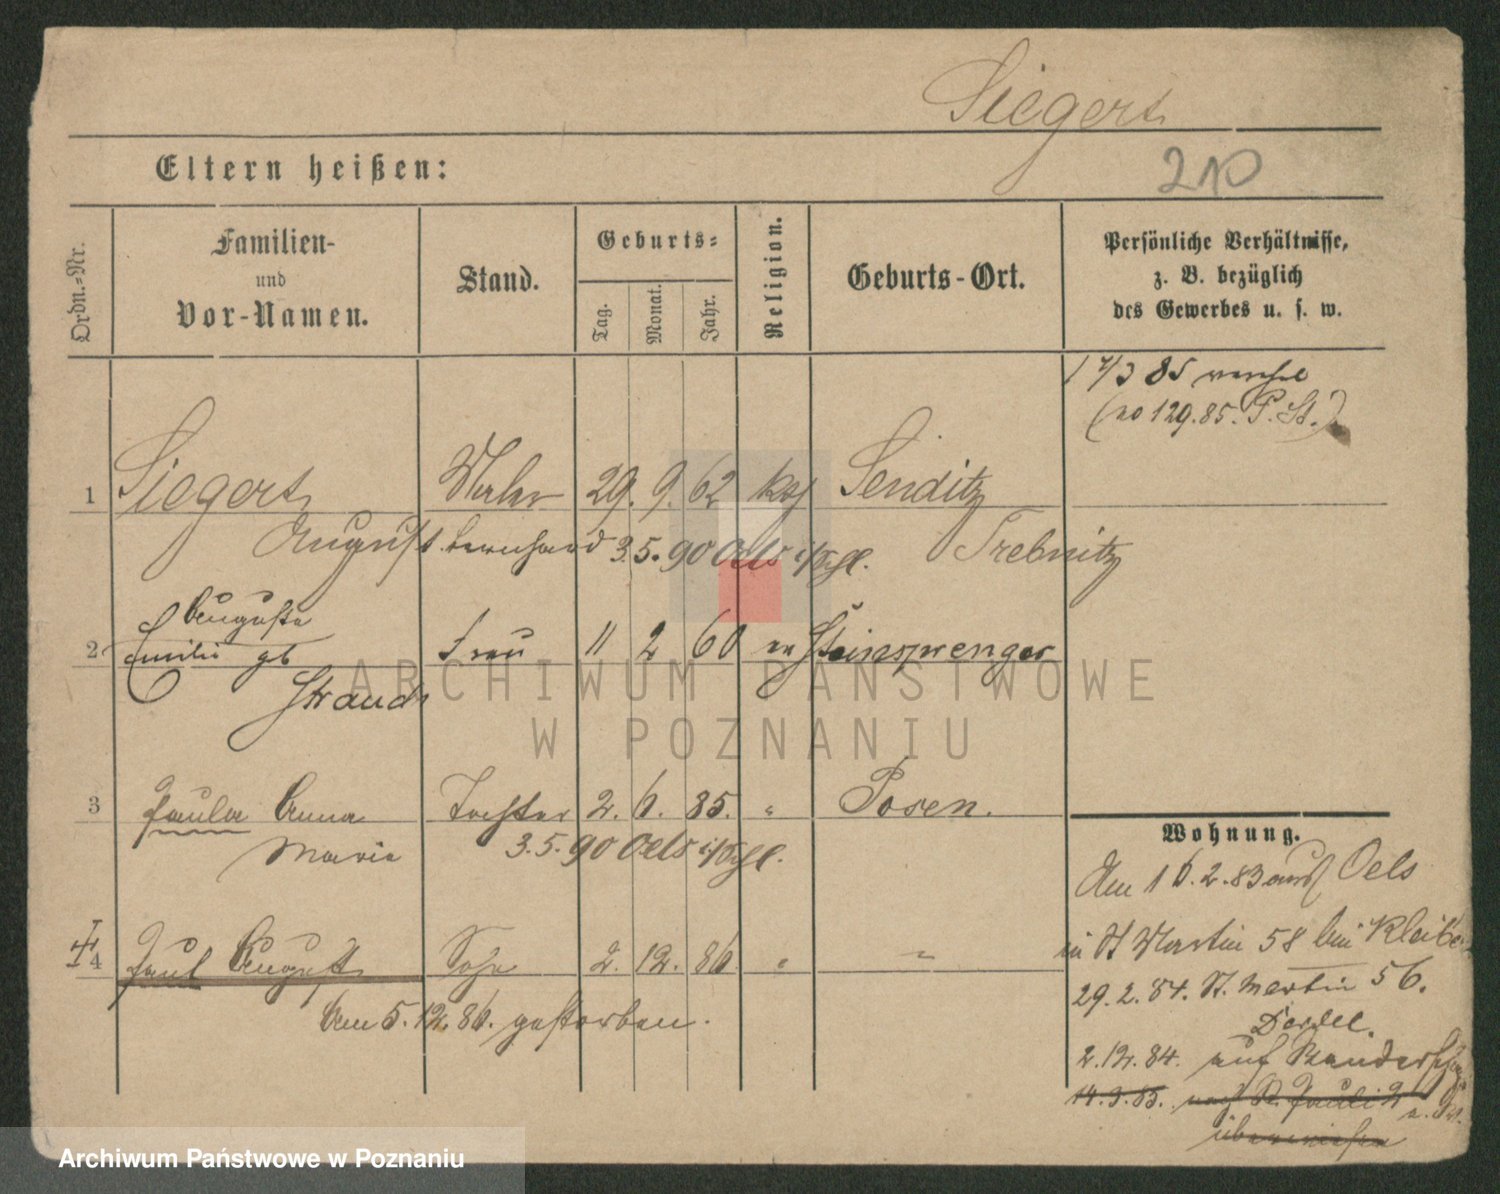 Siegert
210
Eltern heißen:
Ordn.=Nr.
Familien-
und
Vor-Namen.
Stand.
Geburts=
Tag.
Monat.
Jahr.
Religion.
Geburts-Ort.
Persönliche Verhältnisse,
z. B. bezüglich
des Gewerbes u. s. w.
85
(no 129.85. P. St.)
1 Siegert Maler 29. 9. 62 kath Senditz
August Bernhard 3.5.90 Oels i/Schl. Trebnitz
Auguste
2 Emilie gb Frau 11 2 60 ev Steinsprenger
Strauch
3 Paula Anna Tochter 2. 6. 85. " Posen.
Maria 3.5.90 Oels i/Schl.
4 Paul August Sohn 2. 12. 86 " "
Am 5.12.86. gestorben.
Wohnung.
Am 16.2.83 aus Oels
in St Martin 58 bei
29.2.84. St. Martin 56.
2.12.84. auf
14.3.85. nach St. Pauli 2
überwiesen
ARCHIWUM PAŃSTWOWE
W POZNANIU
Archiwum Państwowe w Poznaniu